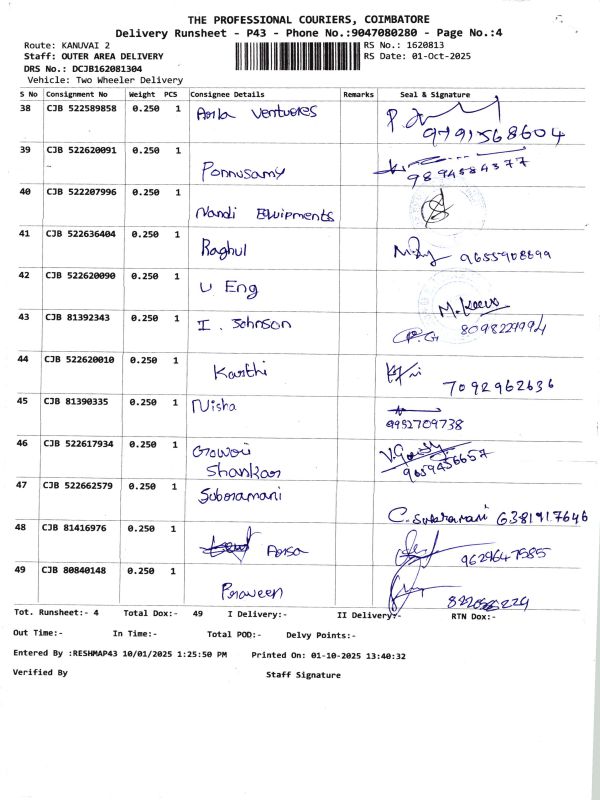 THE PROFESSIONAL COURIERS, COIMBATORE
Delivery Runsheet - P43 - Phone No.:9047080280 - Page No.:4
Route: KANUVAI 2
RS No.: 1620813
Staff: OUTER AREA DELIVERY
RS Date: 01-Oct-2025
DRS No.: DCJB162081304
Vehicle: Two Wheeler Delivery
S No Consignment No Weight PCS Consignee Details Remarks Seal & Signature
38 CJB 522589858 0.250 1 Ventures
9791568604
39 CJB 522620091 0.250 1 Ponnusamy
9894584377
40 CJB 522207996 0.250 1 Nandi Ewipments
41 CJB 522636404 0.250 1 Raghul 9655908899
42 CJB 522620090 0.250 1 U Eng
43 CJB 81392343 0.250 1 I. Johnson
44 CJB 522620010 0.250 1 Karthi
7092962636
45 CJB 81390335 0.250 1 Nisha
9952709738
46 CJB 522617934 0.250 1 Gowri
Shankar
9659456657
47 CJB 522662579 0.250 1 Suboramani
C. 6381917646
48 CJB 81416976 0.250 1
9629647585
49 CJB 80840148 0.250 1 Praveen
Tot. Runsheet:- 4 Total Dox:- 49 I Delivery:- II Delivery:- RTN Dox:-
Out Time:- In Time:- Total POD:- Delvy Points:-
Entered By :RESHMAP43 10/01/2025 1:25:50 PM Printed On: 01-10-2025 13:40:32
Verified By Staff Signature